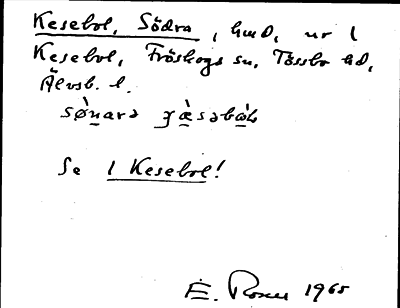 Kesebol, Södra, hmd, nr 1
Kesebol, Fröskogs sn, Tössbo hd,
Älvsb. l.
sø̀nara
Se 1 Kesebol!
E. Rosen 1965